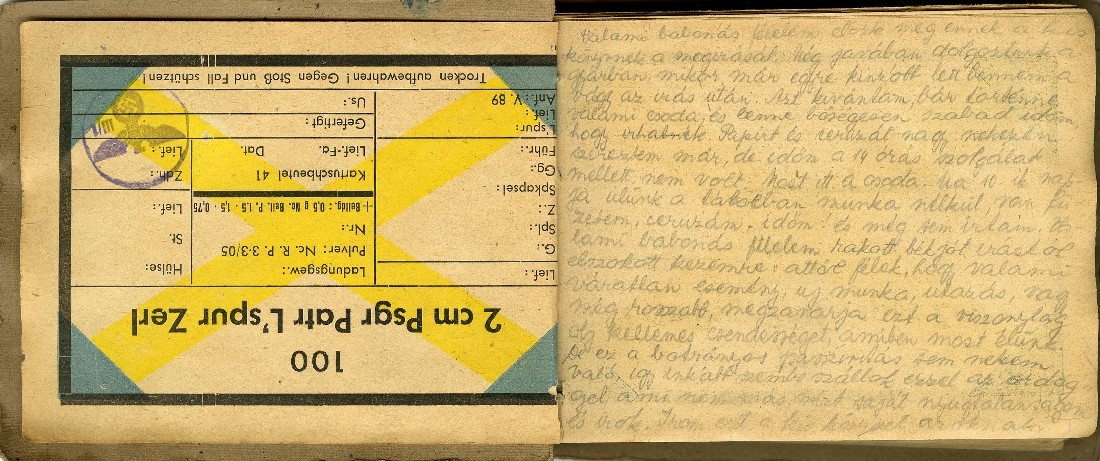 100
2 cm Psgr Patr L'spur Zerl
Lief.: Ladungsgew.: Hülse:
G.: Pulver: Nc. R. P. 3·3/05 St.
Spl.: Nr.: Lief.:
Z.: + Beildg.: 0,5 g Nc. Beil. P. 1.5 · 1,5 · 0,75
Spkapsel:
Gg.: Kartuschbeutel 41 Zdh.:
Führ.: Lief.-Fa. Dat. Lief.:
L'spur: Gefertigt:
Lief.:
Anf.: V. 89 Us.:
Trocken aufbewahren! Gegen Stoß und Fall schützen!
Valami babonás félelem előzte meg ennek a kis
könyvnek a megírását. Még javában dolgoztunk a
gyárban, mikor már egyre kínzott
vágy az írás után. Azt kívántam, bár történne
valami csoda, és lenne bőségesen szabad időm,
hogy írhatnék. Papírt és ceruzát nagy nehezen
szereztem már, de időm a 14 órás szolgálat
mellett nem volt. Most itt a csoda. Ma 10 ik nap-
ja ülünk a munka nélkül, van fü-
zetem, ceruzám, időm és még sem írtam. Va-
lami babonás félelem rakott békjót írástól
elszokott kezemre: attól félek, hogy valami
váratlan esemény, új munka, utazás, vagy
még rosszabb, megzavarja ezt a viszonylag
oly kellemes csendességet, amiben most élünk.
De ez a passzivitás sem nekem
való, így inkább szembe szállok ezzel az ördög-
gel ami nem más, mint saját nyugtalanságom
és írok. Írom ezt a kis könyvet